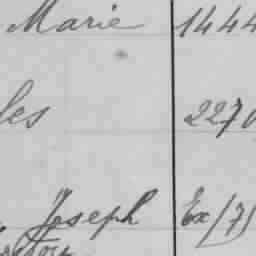 Marie 1444
les 2270
Joseph Ex/75